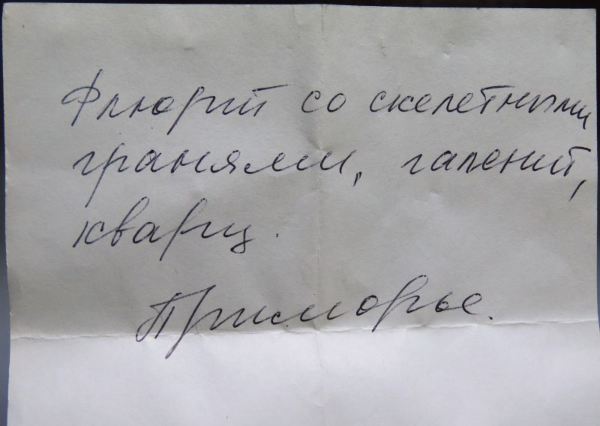 Флюорит со скелетными
гранями, галенит,
кварц.
Приморье.